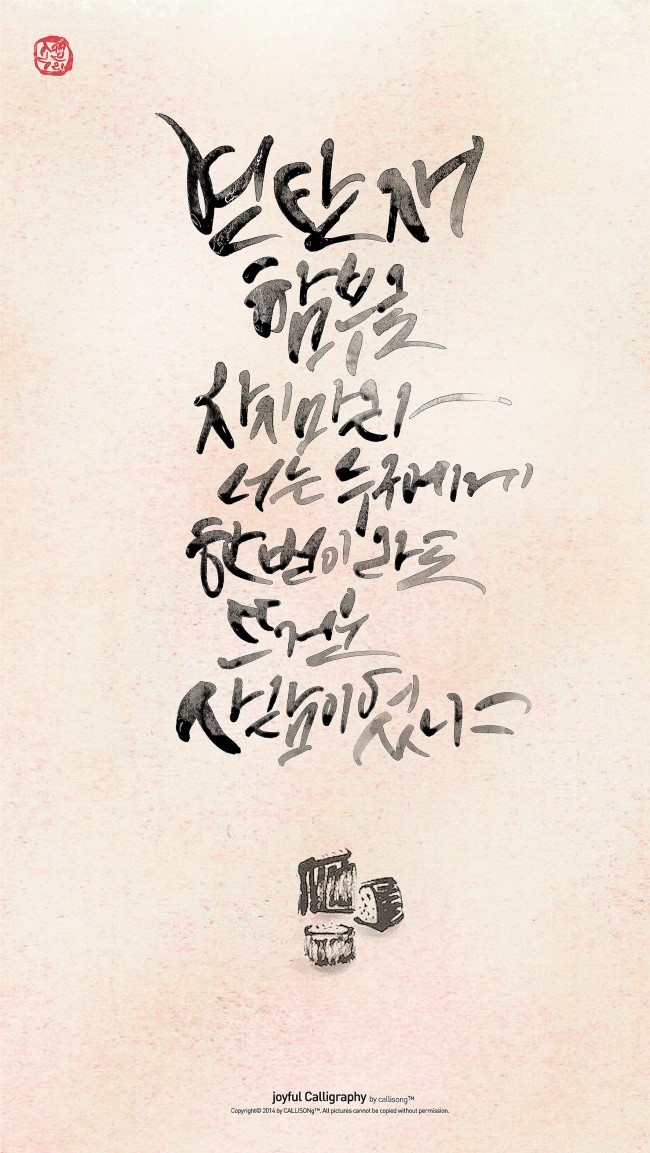 연탄재
함부로
차지마라
너는 누구에게
한번이라도
뜨거운
사람이었냐
joyful Calligraphy by callisong™
Copyright© 2014 by CALLISONg™. All pictures cannot be copied without permission.